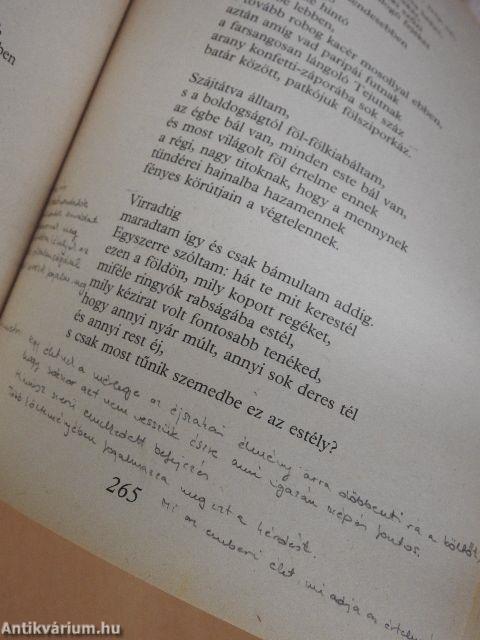 hintó
lebben,
tovább robog kacér mosollyal ebben,
aztán amíg vad paripái futnak
a farsangosan lángoló Tejutnak
arany konfetti-záporába sok száz
batár között, patkójuk fölsziporkáz.
Szájtátva álltam,
s a boldogságtól föl-fölkiabáltam,
az égbe bál van, minden este bál van,
és most világolt föl értelme ennek
a régi, nagy titoknak, hogy a mennynek
tündérei hajnalba hazamennek
fényes körútjain a végtelennek.
Virradtig
maradtam így és csak bámultam addig.
Egyszerre szóltam: hát te mit kerestél
ezen a földön, mily kopott regéket,
miféle ringyók rabságába estél,
mily kézirat volt fontosabb tenéked,
hogy annyi nyár múlt, annyi sok deres tél
és annyi rest éj,
s csak most tűnik szemedbe ez az estély?
egy életnek a mérlege az éjszakai élmény arra döbbenti rá a költőt,
hogy sokszor azt nem vesszük észre ami igazán szép és fontos.
emelkedett befejezés
fogalmazza meg ezt a kérdést.
Mi az emberi élet, mi adja az
265
Antikvárium.hu